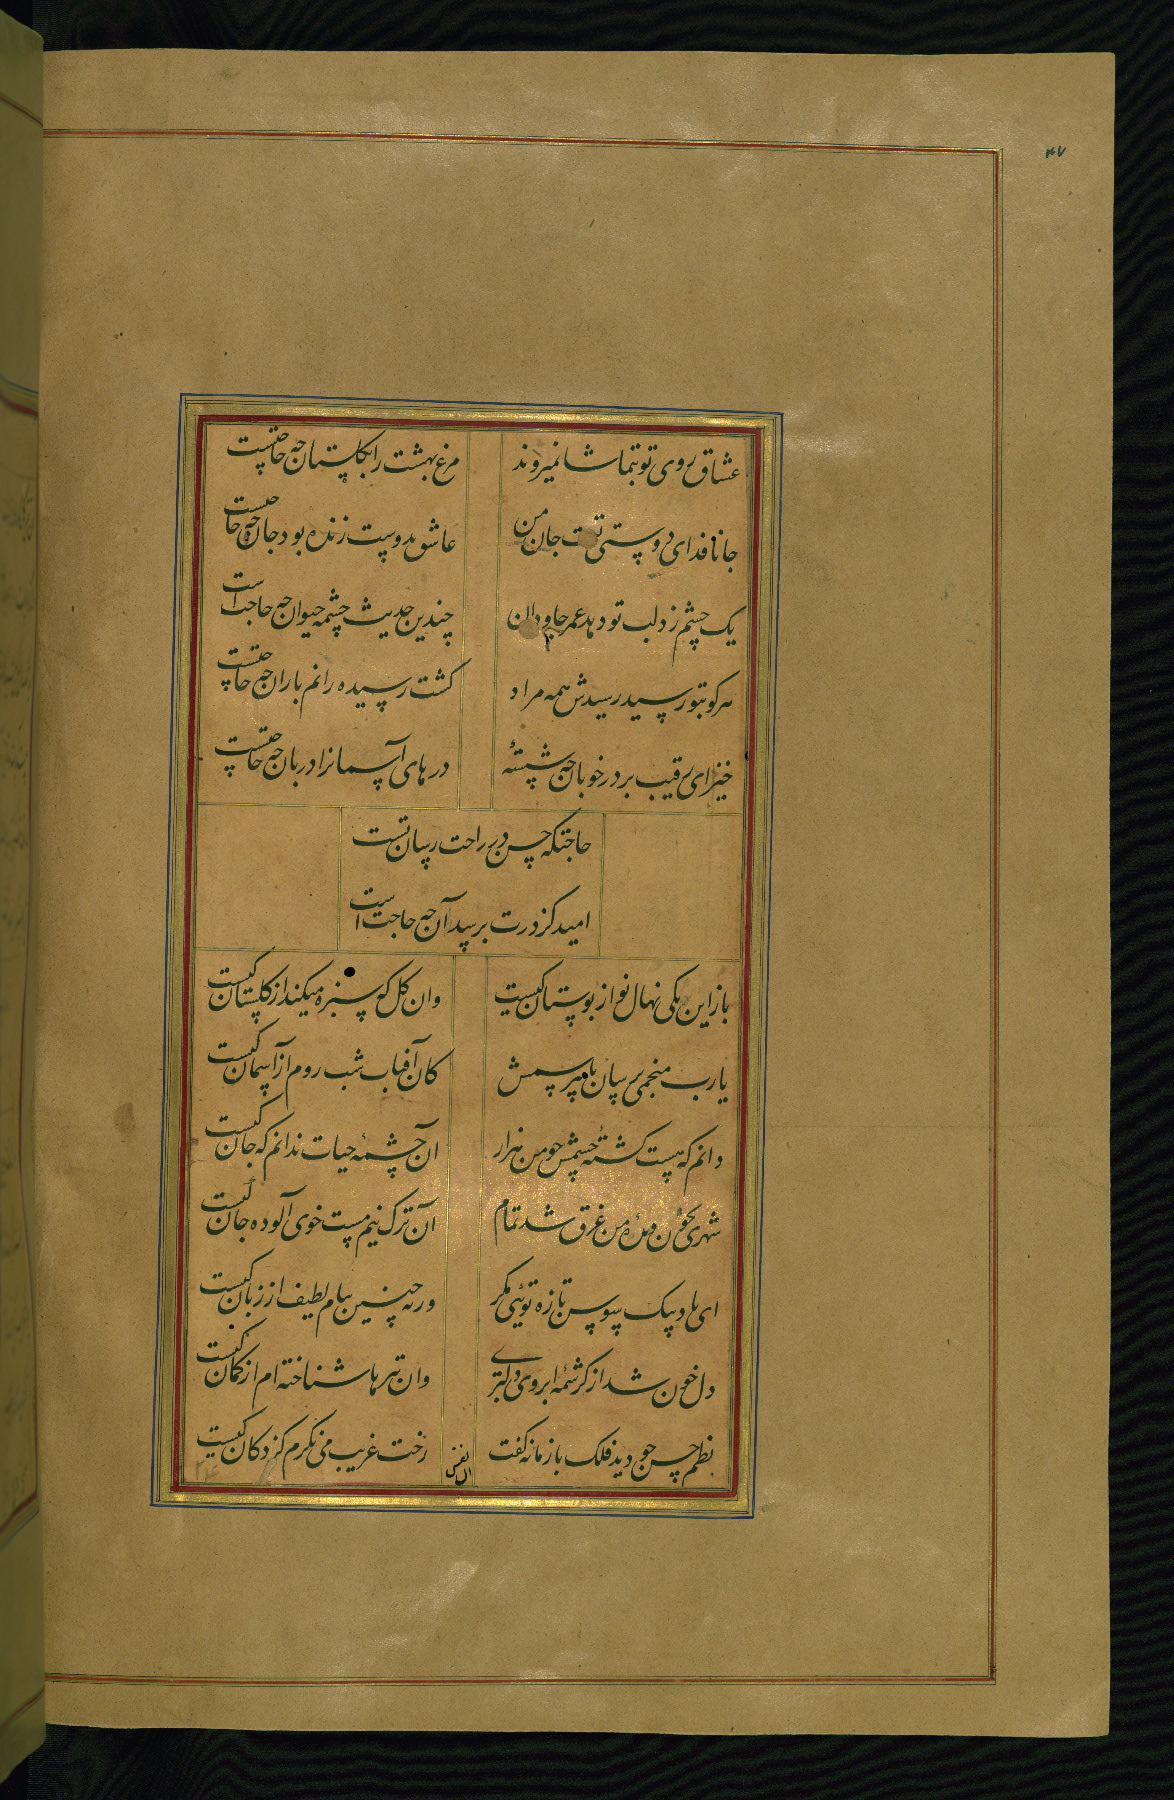 ۴۷
عشاق روی تو بتماشا نمیروند
مرغ بهشت را بگلستان چه حاجتست
جانا فدای دوستی تست جان من
عاشق بدوست زنده بود جان چه حاجتست
یک چشم زد لب تو دهد عمر جاودان
چندین حدیث چشمه حیوان چه حاجت است
هر کو بتو رسید رسیدش همه مراد
کشت رسیده را نم باران چه حاجتست
خیز ای رقیب بر در خوبان چه شستهٔ
درهای آسمانرا دربان چه حاجتست
حاجتگه حسن در راحت رسان تست
امید کز درت برسید آن چه حاجت است
باز این یکی نهال نو از بوستان کیست
وان کل که سبزه میکند از کلستان کیست
یارب منجمی برسان تا بپرسمش
کان آفتاب شب روم از آسمان کیست
دانم که هست کشتهٔ چشمش چو من هزار
آن چشمهٔ حیات ندانم که جان کیست
شهری بخون دیدهٔ من غرق شد تمام
آن ترک نیم مست خوی آلوده جان کیست
ای باد پیک سوسن تازه توئی مکر
ورنه چنین پیام لطیف از زبان کیست
دل خون شد از کرشمهٔ ابروی دلبری
وان تیرها شناخته ام از کمان کیست
نظم حسن چو دید فلک با زمانه کفت
رخت غریب می نکرم کز دکان کیست
ال نفس